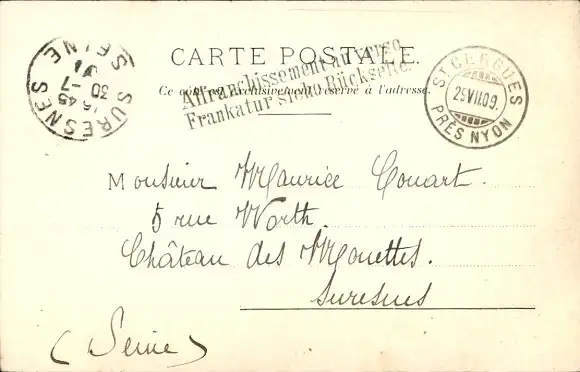 CARTE POSTALE.
Affranchissement au verso
Frankatur siehe Rückseite.
Ce côté est exclusivement réservé à l'adresse.
SURESNES
SEINE
16 45
30 - 7
ST CERGUES
25 VII 09
PRÈS NYON
Monsieur Maurice Couart.
5 rue Worth.
Château des Mouettes.
Suresnes
(Seine)